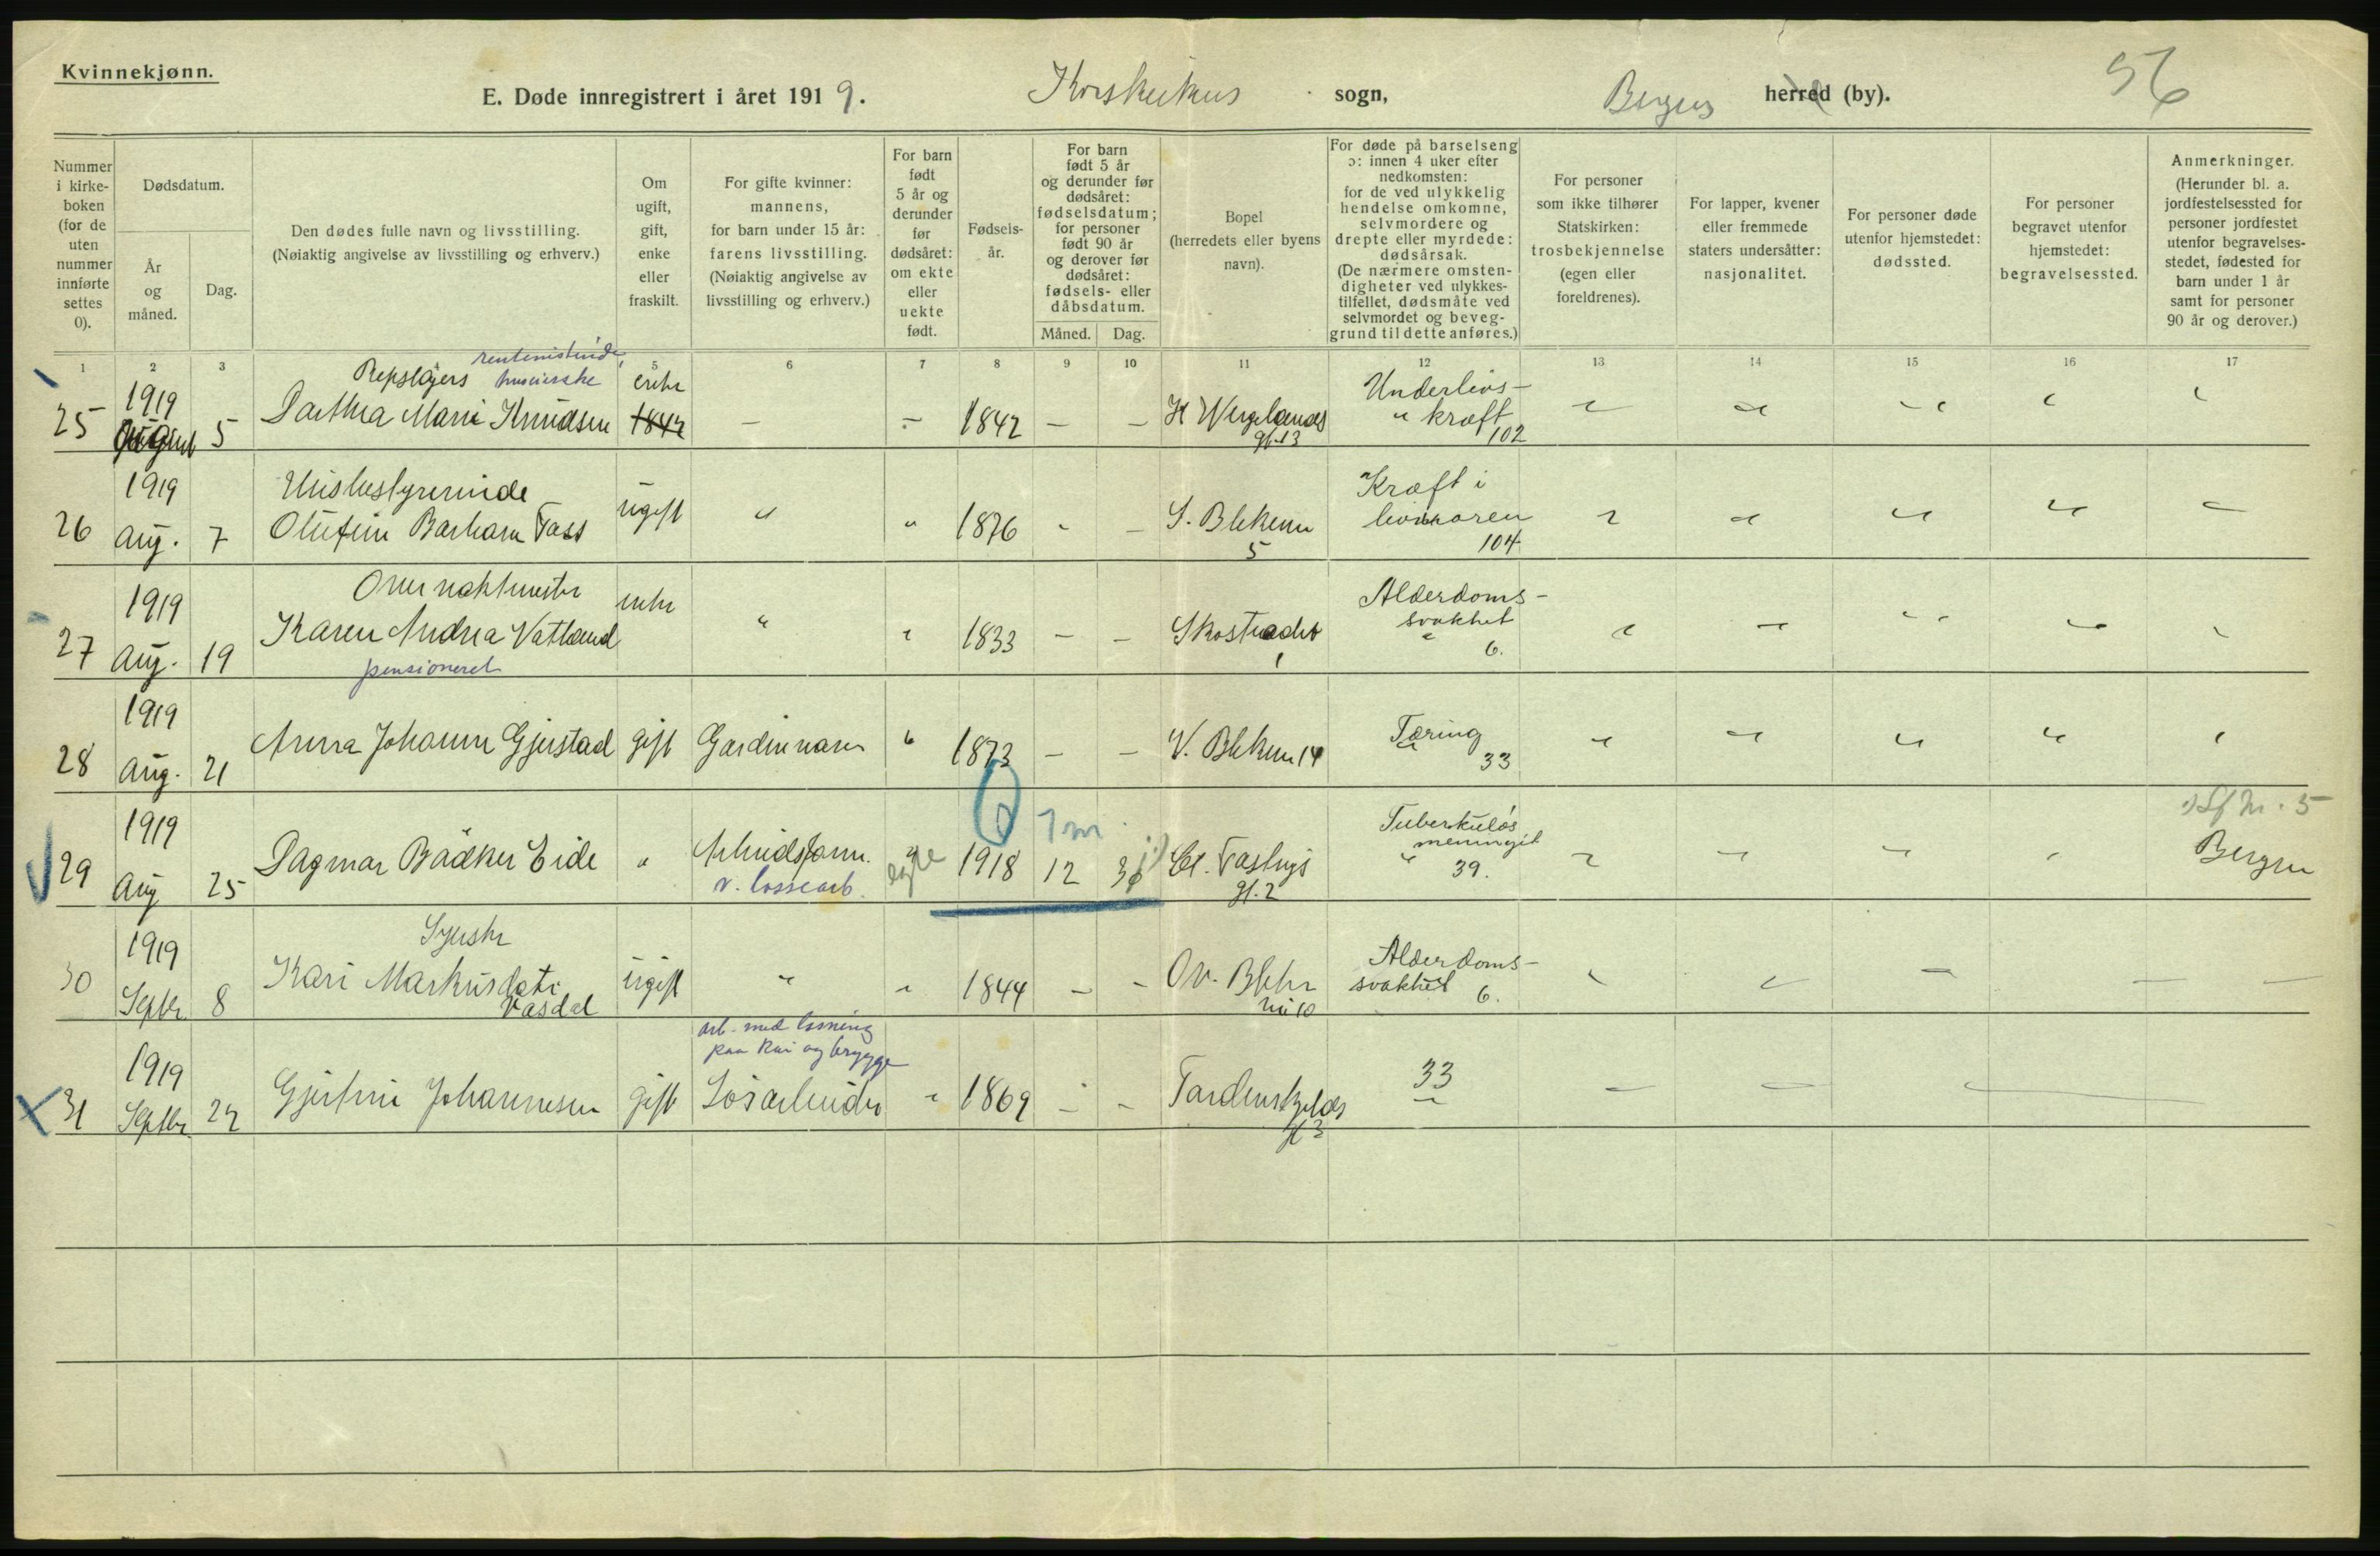 Kvinnekjønn.
E. Døde innregistrert i året 1919. Korskirkens sogn, Bergens herred (by). 56
Nummer i kirke-boken (for de uten nummer innførte settes 0).
Dødsdatum.
År og måned.
Dag.
Den dødes fulle navn og livsstilling.
(Nøiaktig angivelse av livsstilling og erhverv.)
Om ugift, gift, enke eller fraskilt.
For gifte kvinner: mannens, for barn under 15 år: farens livsstilling.
(Nøiaktig angivelse av livsstilling og erhverv.)
For barn født 5 år og derunder før dødsåret: om ekte eller uekte født.
Fødsels-år.
For barn født 5 år og derunder før dødsåret: fødselsdatum; for personer født 90 år og derover før dødsåret: fødsels- eller dåbsdatum.
Måned. Dag.
Bopel
(herredets eller byens navn).
For døde på barselseng ɔ: innen 4 uker efter nedkomsten: for de ved ulykkelig hendelse omkomne, selvmordere og drepte eller myrdede: dødsårsak.
(De nærmere omsten-digheter ved ulykkes-tilfellet, dødsmåte ved selvmordet og beveg-grund til dette anføres.)
For personer som ikke tilhører Statskirken: trosbekjennelse (egen eller foreldrenes).
For lapper, kvener eller fremmede staters undersåtter: nasjonalitet.
For personer døde utenfor hjemstedet: dødssted.
For personer begravet utenfor hjemstedet: begravelsessted.
Anmerkninger.
(Herunder bl. a. jordfestelsessted for personer jordfestet utenfor begravelses-stedet, fødested for barn under 1 år samt for personer 90 år og derover.)
1 2 3 5 6 7 8 9 10 11 12 13 14 15 16 17
Repslagers
25 1919 August 5 Marie Knudsen enke 1842 - - 1842 - - H Wergelands gt. 13 Underlivs-kræft 102
26 1919 Aug. 7 Barbara Fass ugift " " 1876 - - S. Bleken 5 Kræft i 104
27 1919 Aug. 19 Karen Andrea Vatland pensioneret enke " " 1833 - - Skostrædet 1 Alderdoms-svakhet 6.
28 1919 Aug. 21 Anna Johanne Gjerstad gift " 1873 - - V. Bleken 14 Tæring 33
6 7 m.
29 1919 Aug 25 Dagmar Bødker Eide " Arbeidsform. v. lossearb. egte 1918 12 gt. 2 Tuberkuløs meningit 39. Bergen
30 1919 Septbr. 8 Syerske Kari Markusdatr Vasdal ugift " " 1844 - - Øv. Blekev. nr 10 Alderdoms-svakhet 6.
arb. med losning paa kai og brygge
31 1919 Septbr. 22 Johannesen gift Løsarbeider " 1869 - - Tordenskjolds gt 3 33